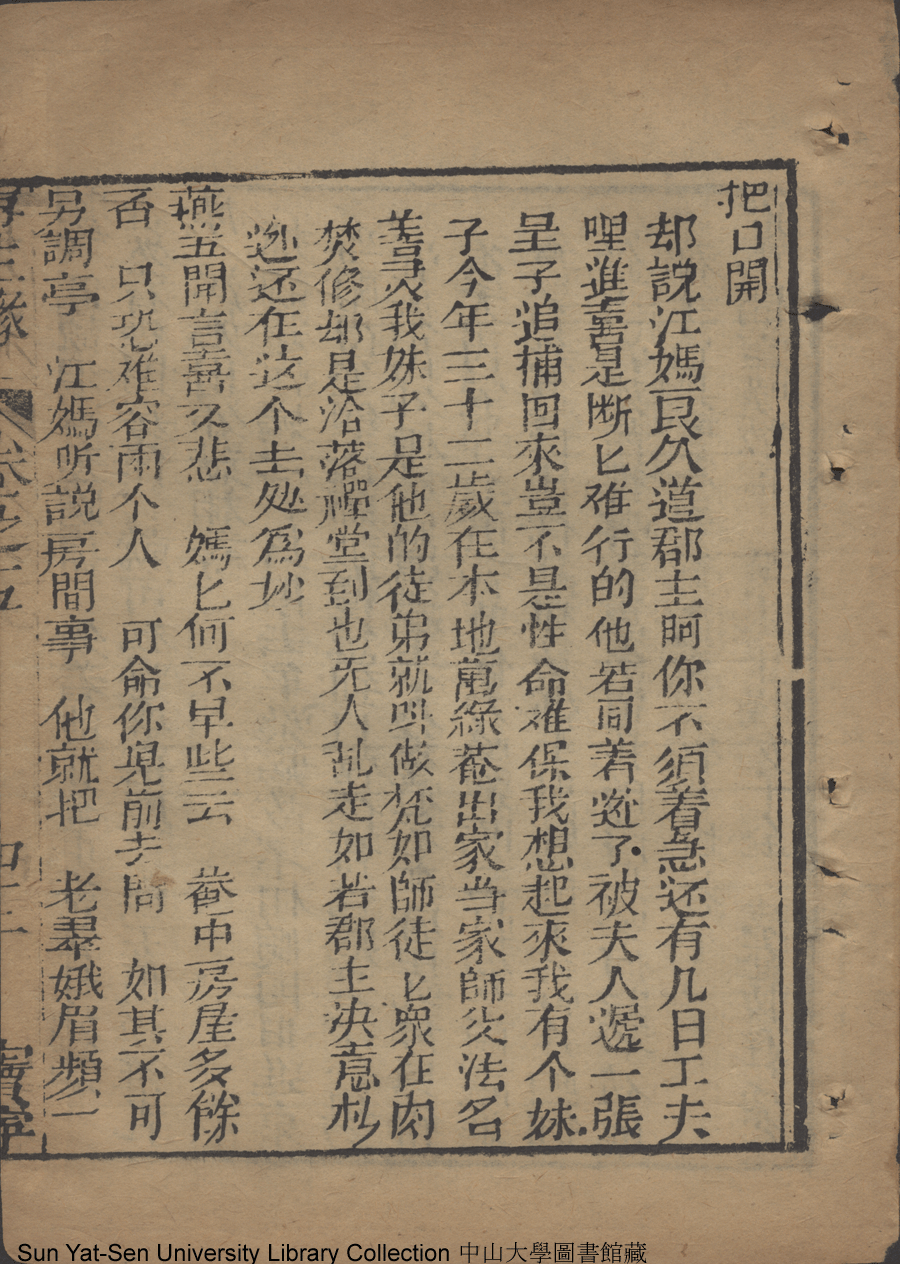 把口開
却説江媽良久道郡主呵你不須着急还有几日工夫
哩進喜是断匕难行的他若同着逃了被夫人遞一張
呈子追捕回來豈不是性命难保我想起來我有个妹
子今年三十二歲在本地萬緣菴出家当家師父法名
善灵我妹子是他的徒弟就叫做梵如師徒匕衆在内
焚修却是洽落禪堂到也无人乱走如若郡主决意杒
逃还在这个去处為妙
燕玉開言喜又悲　媽匕何不早些云　菴中房屋多餘
否　只恐难容兩个人　可命你兒前去問　如其不可
另調亭　江媽听説房間事　他就把　老翠娥眉頻一
再生縁　卷之五　四十一　寶寧
Sun Yat-Sen University Library Collection 中山大學圖書館藏